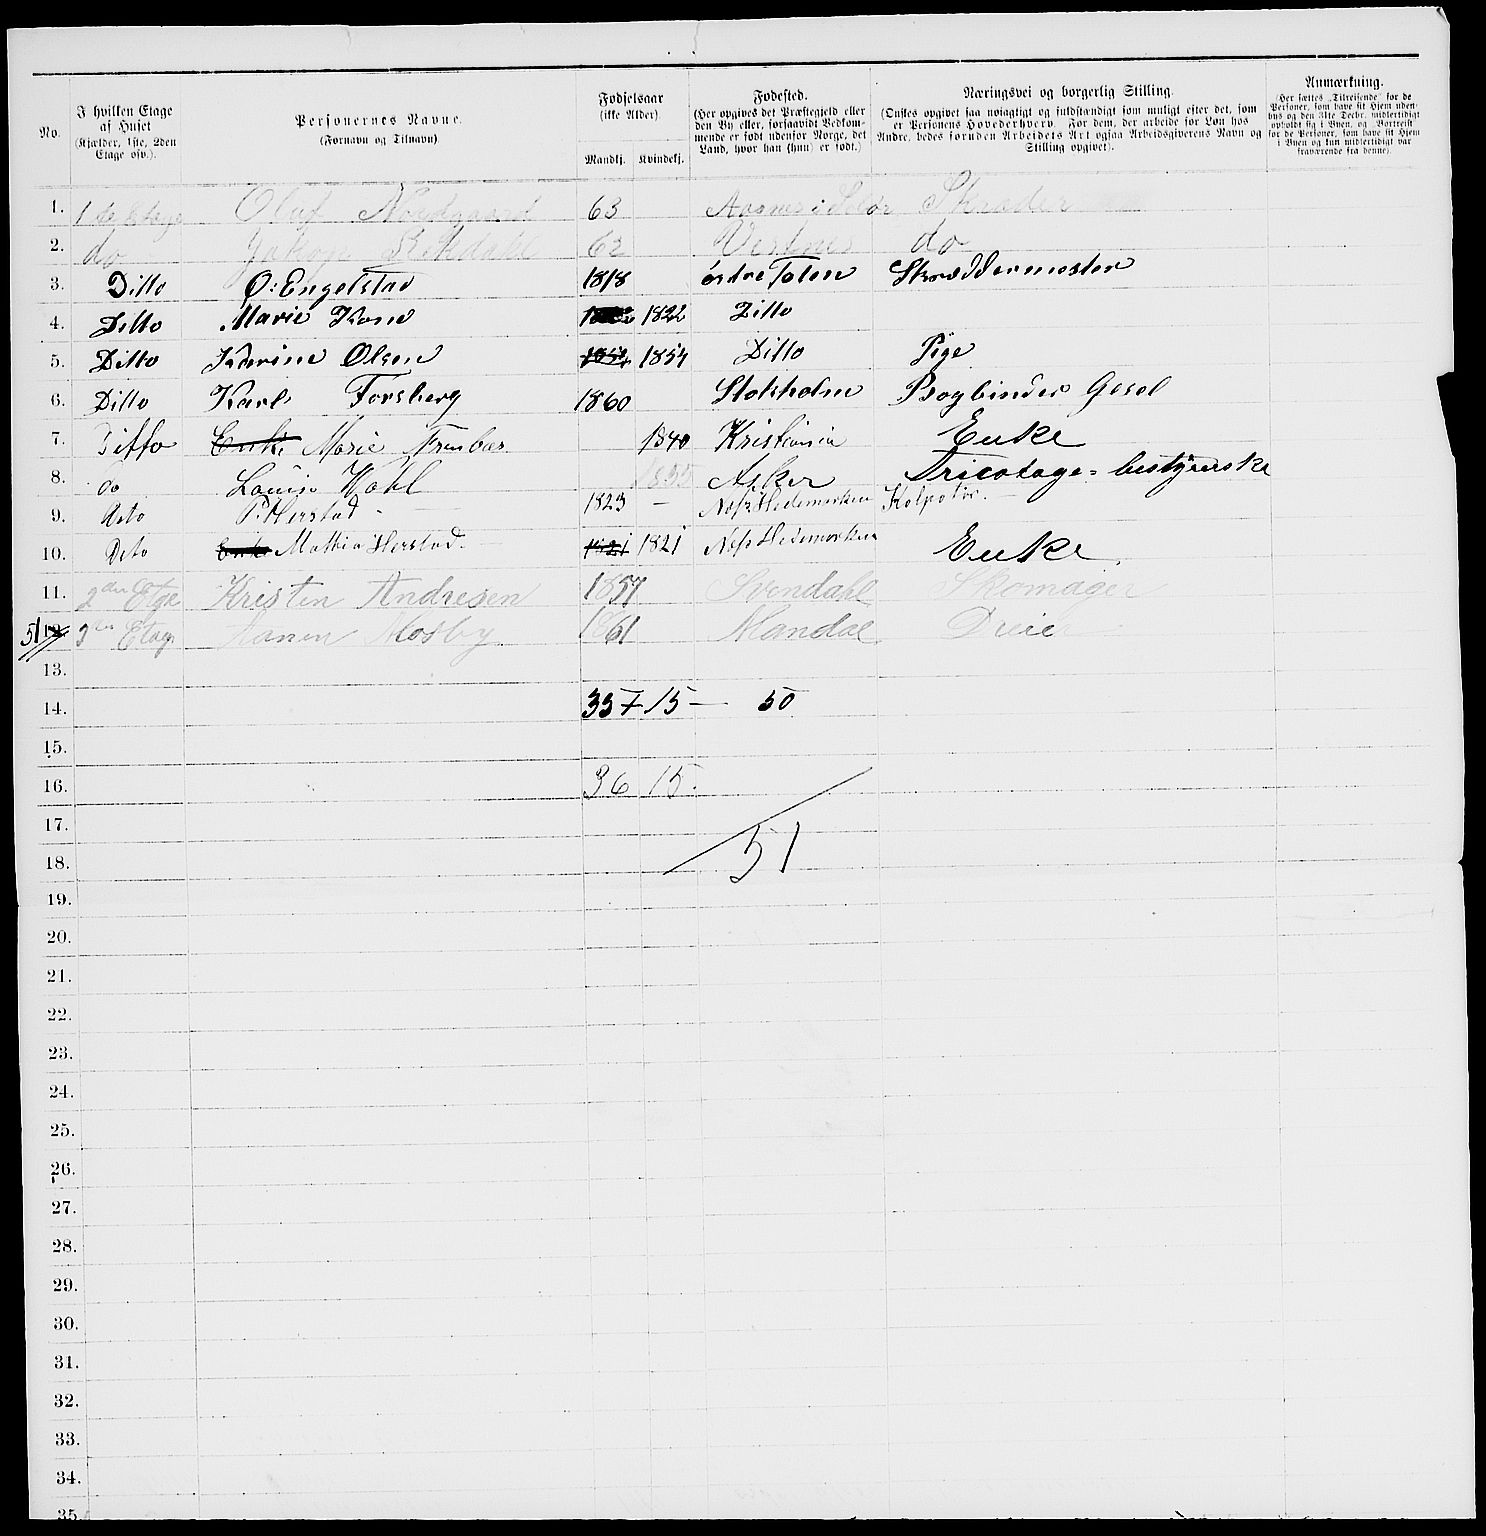 No. I hvilken Etage af Huset (Kjælder, 1ste, 2den Etage osv.). Personernes Navne. (Fornavn og Tilnavn) Fødselsaar (ikke Alder) Mandkj. Kvindekj. Fødested. (Her opgives det Præstegjeld eller den By eller, forsaavidt Vedkommende er født udenfor Norge, det Land, hvor han (hun) er født.) Næringsvei og borgerlig Stilling. (Ønskes opgivet saa nøiagtigt og fuldstændigt som muligt efter det, som er Personens Hovederhverv. For dem, der arbeide for Løn hos Andre, bedes foruden Arbeidets Art ogsaa Arbeidsgiverens Navn og Stilling opgivet). Anmærkning. (Her sættes „Tilreisende“ for de Personer, som have sit Hjem udenbys og den 31te Decbr. midlertidigt opholdt sig i Byen, og „Bortreist“ for de Personer, som have sit Hjem i Byen og kun midlertidigt var fraværende fra denne).
1. 1 te Etage Oluf Nordgaard 63 Aasnes i Solør Skræder
2. do Jakop 62 Vestnes do
3. Ditto O: Engelstad 1818 östre Toten Skræddermester
4. Ditto Marie Kone 1822 Ditto
5. Ditto Karine Olsen 1854 1854 Ditto Pige
6. Ditto Karl Forsberg 1860 Stokholm Bogbinder Gesel
7. Ditto Enke Marie 1840 Kristiania Enke
8. do Louise Wahl 1855 Asker Tricotage=bestyrerske
9. Deto P. Herstad - 1823 — Næs Hedemarken Kolpotør. —
10. Deto Enke Mathia Herstad. 1821 1821 Næs Hedemarken Enke
11. 2den Etge Kristen Andresen 1857 Svendahl Skomager
51// 12. 3 Etage Mosby 1861 Mandal Dreie
13.
14. 35 + 15 — 50
15.
16. 36 15.
17.
51
18.
19.
20.
21.
22.
23.
24.
25.
26.
27.
28.
29.
30.
31.
32.
33.
34.
35.